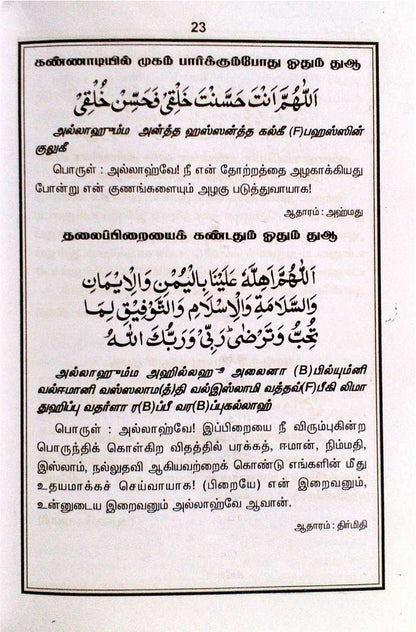 23
கண்ணாடியில் முகம் பார்க்கும்போது ஓதும் துஆ
اَللّٰهُمَّ اَنْتَ حَسَّنْتَ خَلْقِىْ فَحَسِّنْ خُلُقِىْ
அல்லாஹும்ம அன்த்த ஹஸ்ஸன்த்த கல்கீ (F)பஹஸ்ஸின்
குலுகீ
பொருள் : அல்லாஹ்வே! நீ என் தோற்றத்தை அழகாக்கியது
போன்று என் குணங்களையும் அழகு படுத்துவாயாக!
ஆதாரம் : அஹ்மது
தலைப்பிறையைக் கண்டதும் ஓதும் துஆ
اَللّٰهُمَّ اَهِلَّهٗ عَلَيْنَا بِالْيُمْنِ وَالْاِيْمَانِ
وَالسَّلَامَةِ وَالْاِسْلَامِ وَالتَّوْفِيْقِ لِمَا
تُحِبُّ وَتَرْضٰى رَبِّىْ وَرَبُّكَ اللّٰهُ
அல்லாஹும்ம அஹில்லஹூ அலைனா (B)பில்யும்னி
வல்ஈமானி வஸ்ஸலாம(த்)தி வல்இஸ்லாமி வத்தவ்(F)பீகி லிமா
துஹிப்பு வதர்ளா ர(B)ப்பீ வர(B)ப்புகல்லாஹ்
பொருள் : அல்லாஹ்வே! இப்பிறையை நீ விரும்புகின்ற
பொருந்திக் கொள்கிற விதத்தில் பரக்கத், ஈமான், நிம்மதி,
இஸ்லாம், நல்லுதவி ஆகியவற்றைக் கொண்டு எங்களின் மீது
உதயமாக்கச் செய்வாயாக! (பிறையே) என் இறைவனும்,
உன்னுடைய இறைவனும் அல்லாஹ்வே ஆவான்.
ஆதாரம் : திர்மிதி